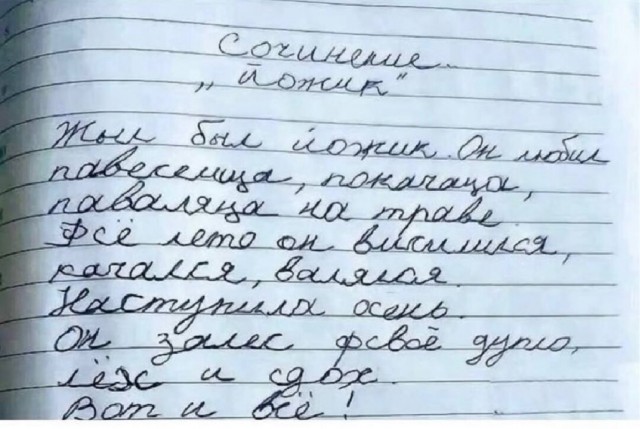 Сочинение.
„Йожик"
Жыл был йожик. Он любил
павеселица, покачаца,
паваляца на траве.
Фсё лето он висилился,
качался, валялся.
Наступила осень.
Он залес фсваё дупло,
лёх и сдох.
Вот и всё!